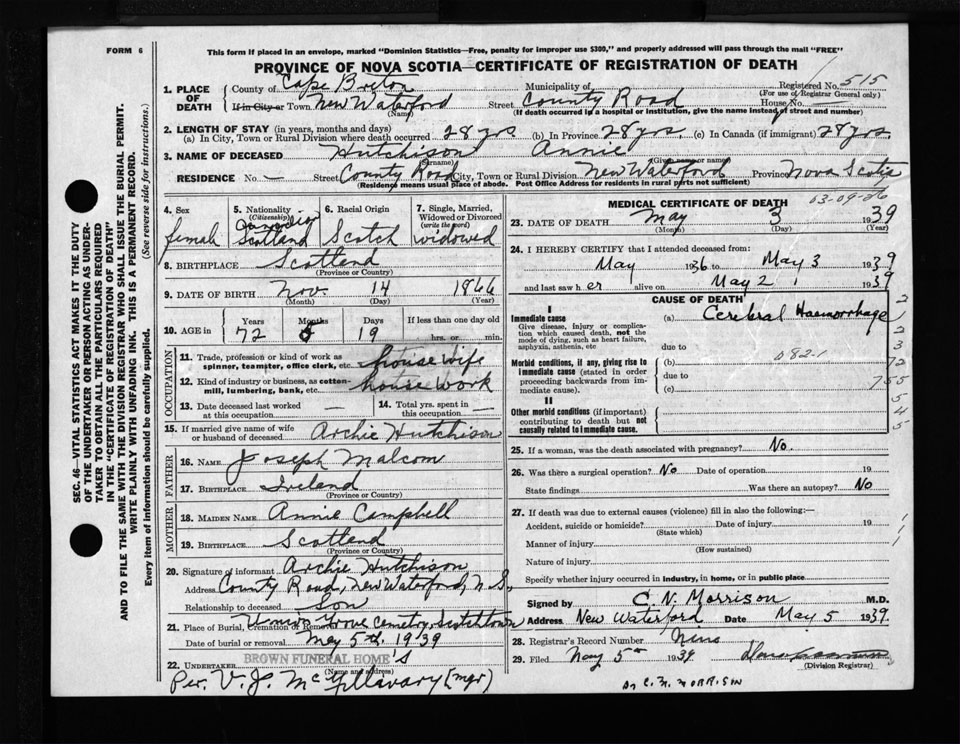 FORM 6
This form if placed in an envelope, marked "Dominion Statistics—Free, penalty for improper use $300," and properly addressed will pass through the mail "FREE"
PROVINCE OF NOVA SCOTIA—CERTIFICATE OF REGISTRATION OF DEATH
SEC. 46—VITAL STATISTICS ACT MAKES IT THE DUTY
OF THE UNDERTAKER OR PERSON ACTING AS UNDER-
TAKER TO OBTAIN ALL THE PARTICULARS REQUIRED
IN THE "CERTIFICATE OF REGISTRATION OF DEATH"
AND TO FILE THE SAME WITH THE DIVISION REGISTRAR WHO SHALL ISSUE THE BURIAL PERMIT.
WRITE PLAINLY WITH UNFADING INK. THIS IS A PERMANENT RECORD.
Every item of information should be carefully supplied. (See reverse side for instructions.)
1. PLACE OF DEATH
County of Cape Breton Municipality of Registered No. 515
(For use of Registrar General only)
If in City or Town New Waterford Street County Road House No. —
(Name) (If death occurred in a hospital or institution, give the name instead of street and number)
2. LENGTH OF STAY (in years, months and days)
(a) In City, Town or Rural Division where death occurred 28 yrs (b) In Province 28 yrs (c) In Canada (if immigrant) 28 yrs
3. NAME OF DECEASED Hutchison Annie
(Surname) (Given or name)
RESIDENCE No. — Street County Road City, Town or Rural Division New Waterford Province Nova Scotia
(Residence means usual place of abode. Post Office Address for residents in rural parts not sufficient)
4. Sex
female
5. Nationality
(Citizenship)
Canadian
Scotland
6. Racial Origin
Scotch
7. Single, Married, Widowed or Divorced
(write the word)
widowed
8. BIRTHPLACE Scotland
(Province or Country)
9. DATE OF BIRTH Nov. 14 1866
(Month) (Day) (Year)
10. AGE in Years Months Days If less than one day old
72 5 19 hrs. or min.
OCCUPATION
11. Trade, profession or kind of work as
spinner, teamster, office clerk, etc. house wife
12. Kind of industry or business, as cotton-
mill, lumbering, bank, etc. house work
13. Date deceased last worked
at this occupation —
14. Total yrs. spent in
this occupation —
15. If married give name of wife
or husband of deceased Archie Hutchison
FATHER
16. NAME Joseph Malcom
17. BIRTHPLACE Ireland
(Province or Country)
MOTHER
18. MAIDEN NAME Annie Campbell
19. BIRTHPLACE Scotland
(Province or Country)
20. Signature of informant Archie Hutchison
Address County Road, New Waterford, N.S.,
Relationship to deceased Son
21. Place of Burial, Cremation or Removal Union Grove Cemetry, Scotchtown
Date of burial or removal May 5th, 1939
22. UNDERTAKER BROWN FUNERAL HOME'S
(Name and address)
Per. V. J. McGillavary (mgr)
MEDICAL CERTIFICATE OF DEATH
03-09-26
23. DATE OF DEATH May 3 1939
(Month) (Day) (Year)
24. I HEREBY CERTIFY that I attended deceased from:
May 1936 to May 3 1939
and last saw her alive on May 2 1939
CAUSE OF DEATH
I
Immediate cause
Give disease, injury or complica-
tion which caused death, not the
mode of dying, such as heart failure,
asphyxia, asthenia, etc
(a) Cerebral Haemorrhage
due to
Morbid conditions, if any, giving rise to
immediate cause (stated in order
proceeding backwards from im-
mediate cause).
(b) 082-1
due to
(c)
II
Other morbid conditions (if important)
contributing to death but not
causally related to immediate cause.
25. If a woman, was the death associated with pregnancy? No.
26. Was there a surgical operation? No Date of operation 19
State findings Was there an autopsy? No
27. If death was due to external causes (violence) fill in also the following:—
Accident, suicide or homicide? Date of injury 19
(State which)
Manner of injury
(How sustained)
Nature of injury
Specify whether injury occurred in industry, in home, or in public place
Signed by C. N. Morrison M.D.
Address New Waterford Date May 5 1939
28. Registrar's Record Number Nine
29. Filed May 5th 1939
(Division Registrar)
Dr C. N. MORRISON